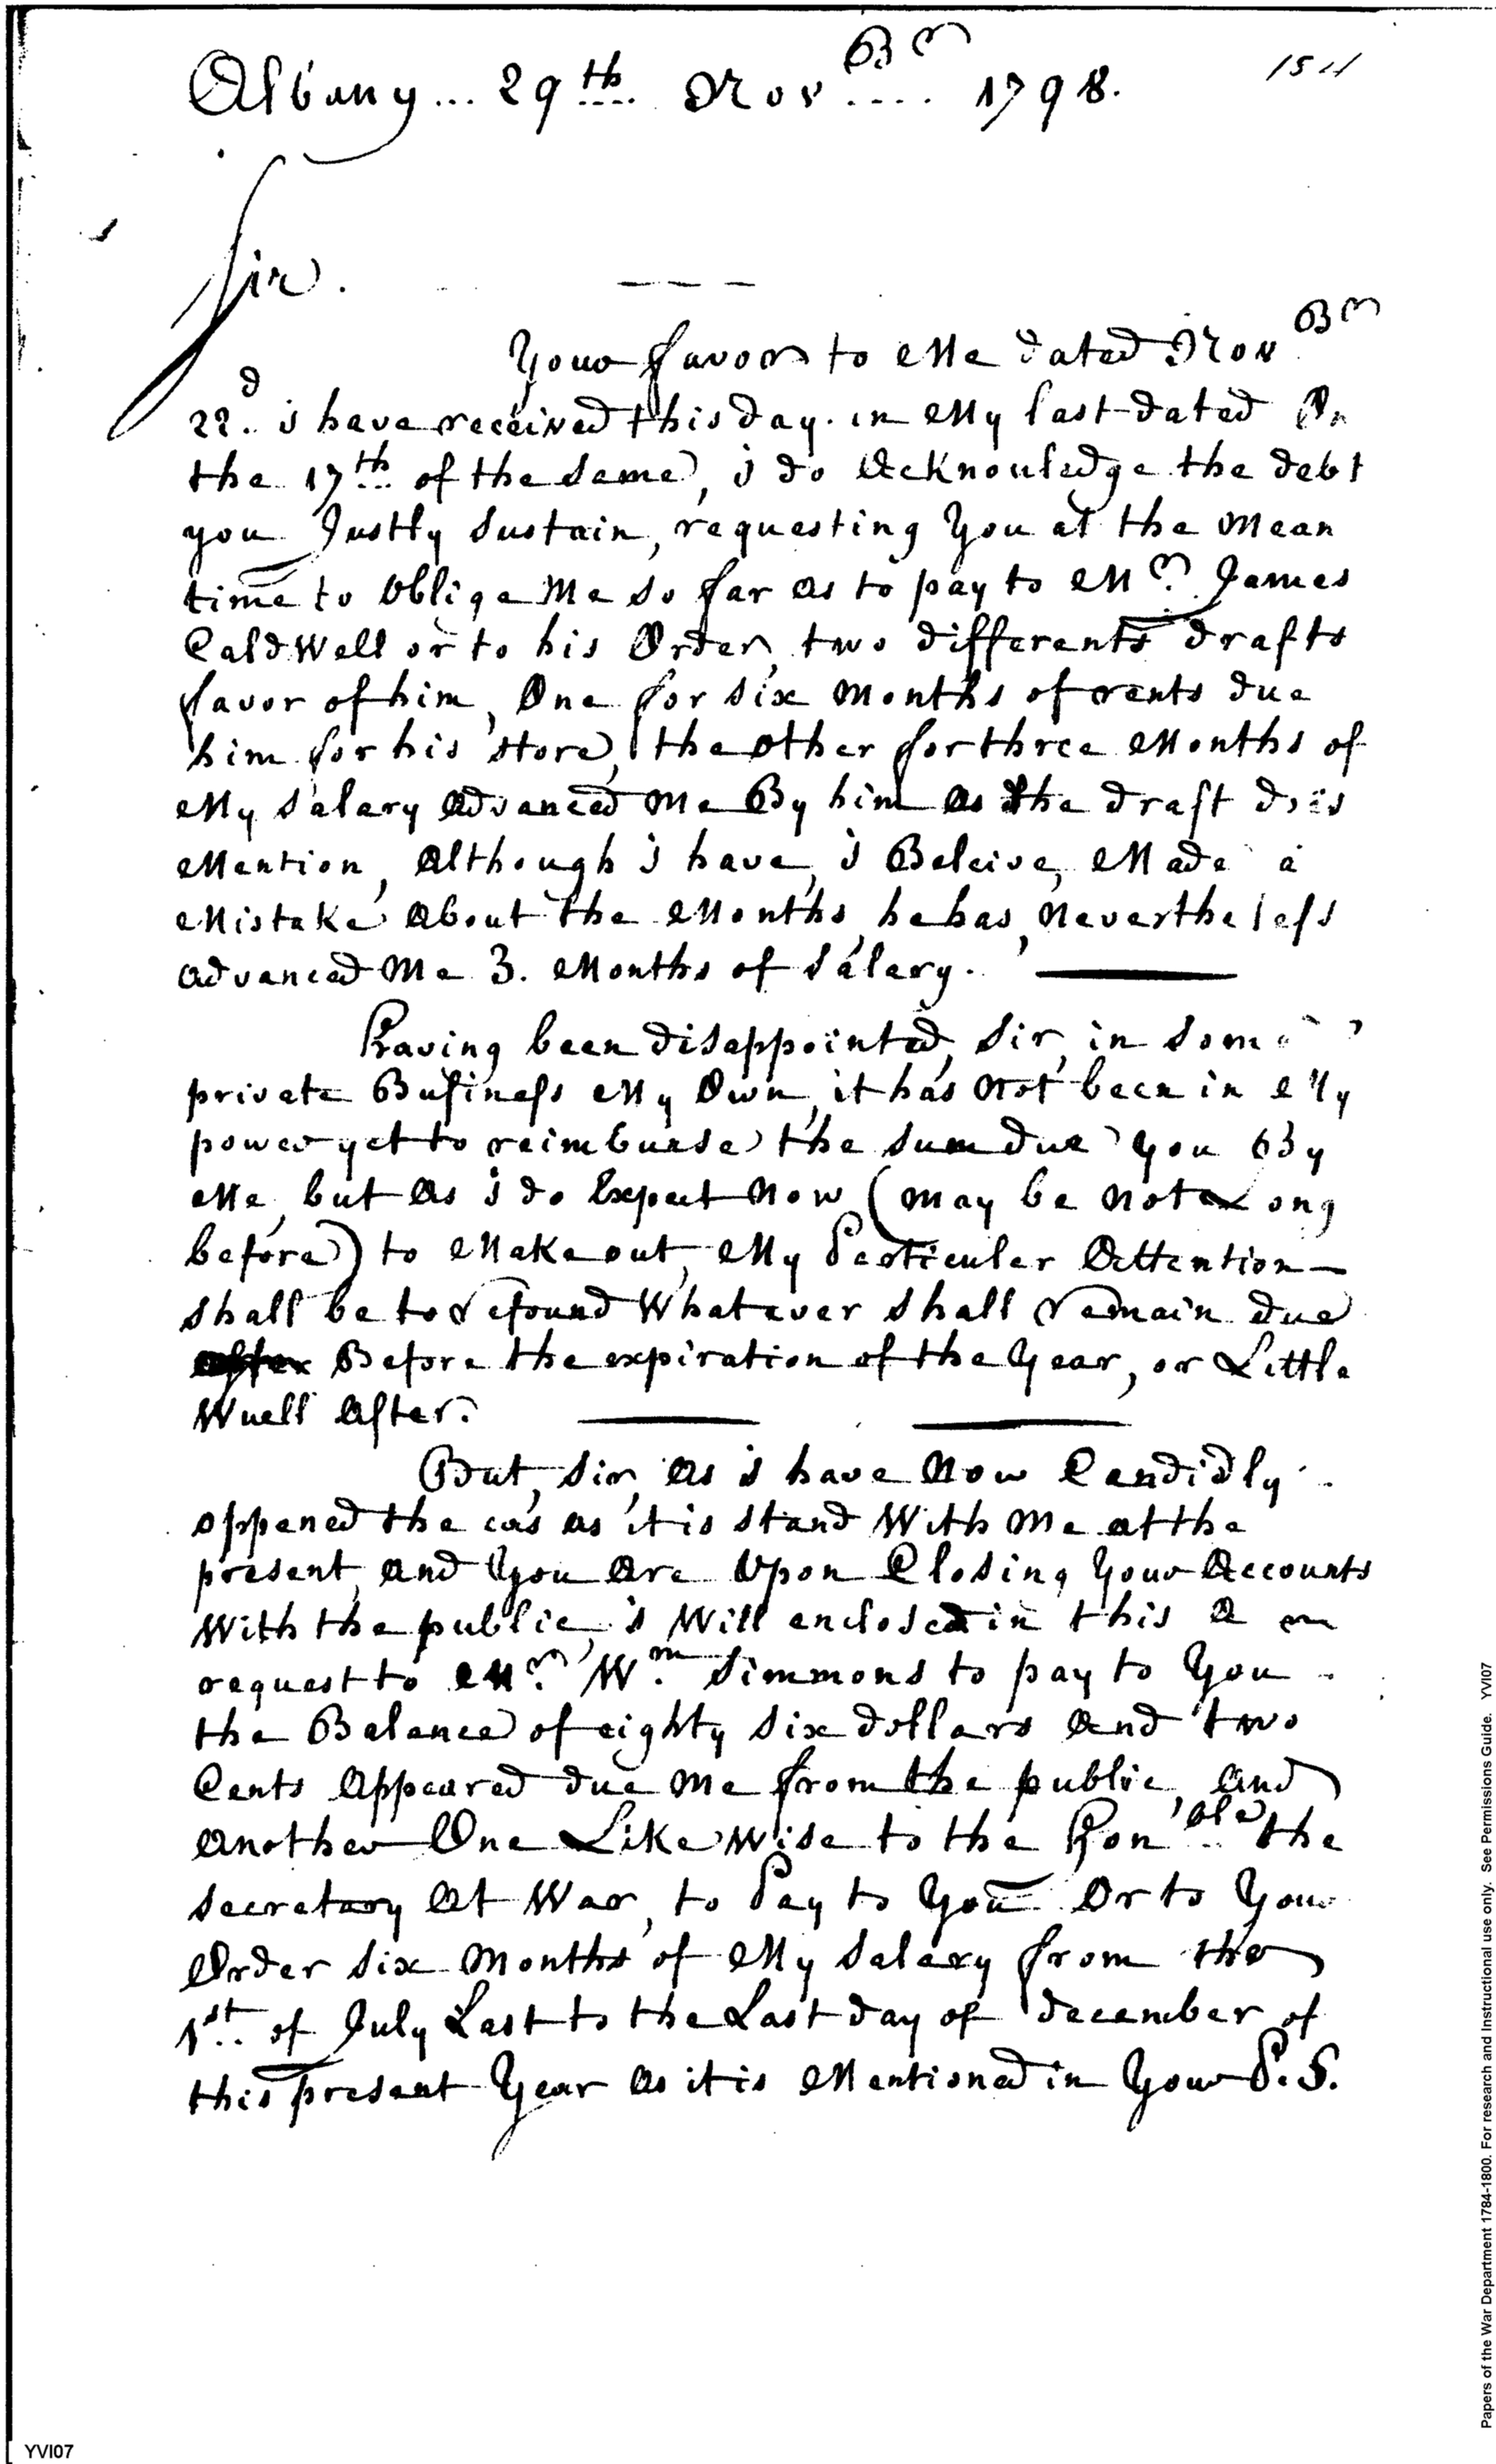 Albany... 29th Nov.br 1798.
Sir.
Your favor to Me dated Novbr
22d. i have received this day. in My last dated On
the 17th of the Same, i do Acknowledge the debt
you Justly Sustain, requesting You at the Mean
time to Oblige Me So far as to pay to Mr. James
CaldWell or to his Order, two differents drafts
favor of him, One for Six Months of rents due
him for his Store, the other for three Months of
My Salary Advanced Me By him As the draft dois
Mention, Although i have, i Beleive, Made a
Mistake About the Months, he has, Nevertheless
advanced Me 3. Months of Salary.
Having been disappointed, Sir, in Some
private Business My Own, it has Not been in My
power yet to reimburse the Sum due You By
Me, but As i do Expect Now (may be Not Long
before) to Make out, My Perticuler Attention
Shall be to refound Whatever Shall remain due
after Before the expiration of the Year, or Little
Wuell After.
But, Sir, As i have Now Candidly
oppened the cas as it is Stand With Me at the
present, and You Are Upon Closing Your Accounts
With the public, i Will enclosed in this A
request to Mr. Wm. Simmons to pay to You
the Balance of eighty Six dollars And two
Cents Appeared due Me from the public, And
Another One Likewise to the Hon'ble the
Secretary At War, to Pay to You Or to Your
Order Six Months of My Salary from the
1st. of July Last to the Last day of december of
this present Year As it is Mentioned in Your P.S.
YVI07
Papers of the War Department 1784-1800. For research and Instructional use only. See Permissions Guide. YVI07